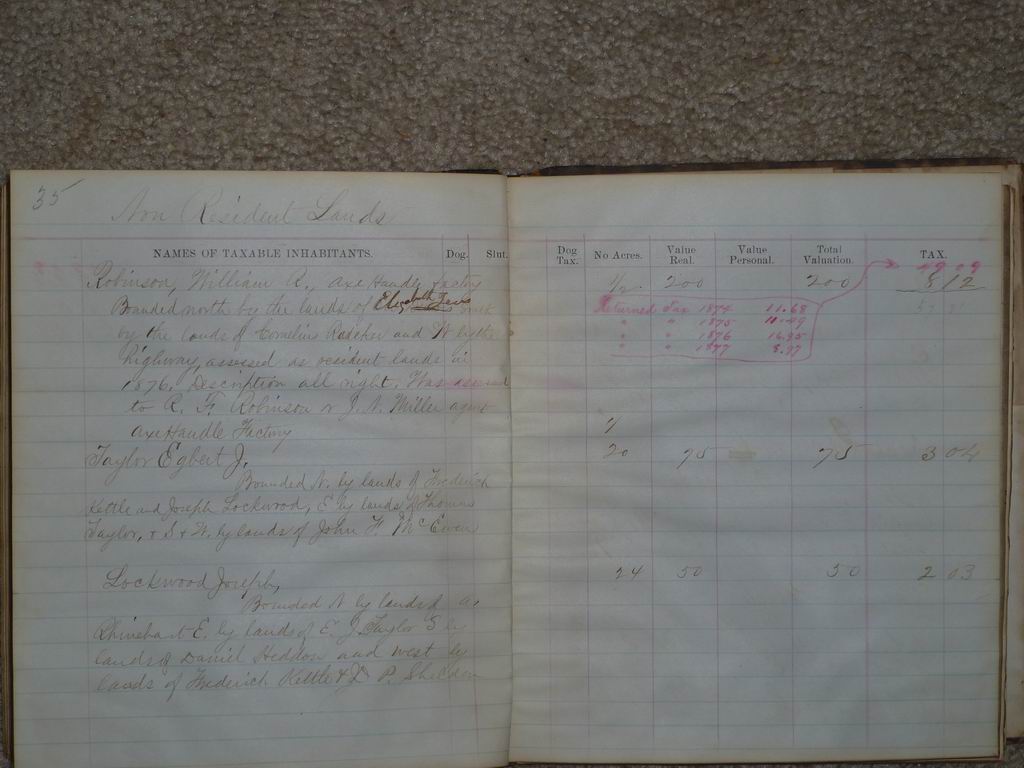 35
Non Resident Lands
NAMES OF TAXABLE INHABITANTS. Dog. Slut. Dog Tax. No Acres. Value Real. Value Personal. Total Valuation. TAX.
49 09
Robinson, William R., Axe Handle Factory 1/2 200 200 8 12
Bounded north by the lands of Elizabeth
Returned Tax 1874 11.68
by the lands of Cornelius and W by the
" " 1875 11.49
highway, assessed as resident lands in
" " 1876 16.95
" " 1877 8.97
1876. Description all right. Was assessed
to R. F. Robinson or J. N. Miller agent
Axe Handle Factory
Taylor Egbert J. 20 75 75 3 04
Bounded N. by lands of Frederich
Kettle and Joseph Lockwood, E by lands of Thomas
Taylor, & S & W. by lands of John F. McEwen
Lockwood Joseph, 24 50 50 2 03
Bounded N by lands of
Rhinehart E. by lands of E. J. Taylor S by
lands of Daniel Heddon and west by
lands of Frederich Kettle & J. P. Sheldon